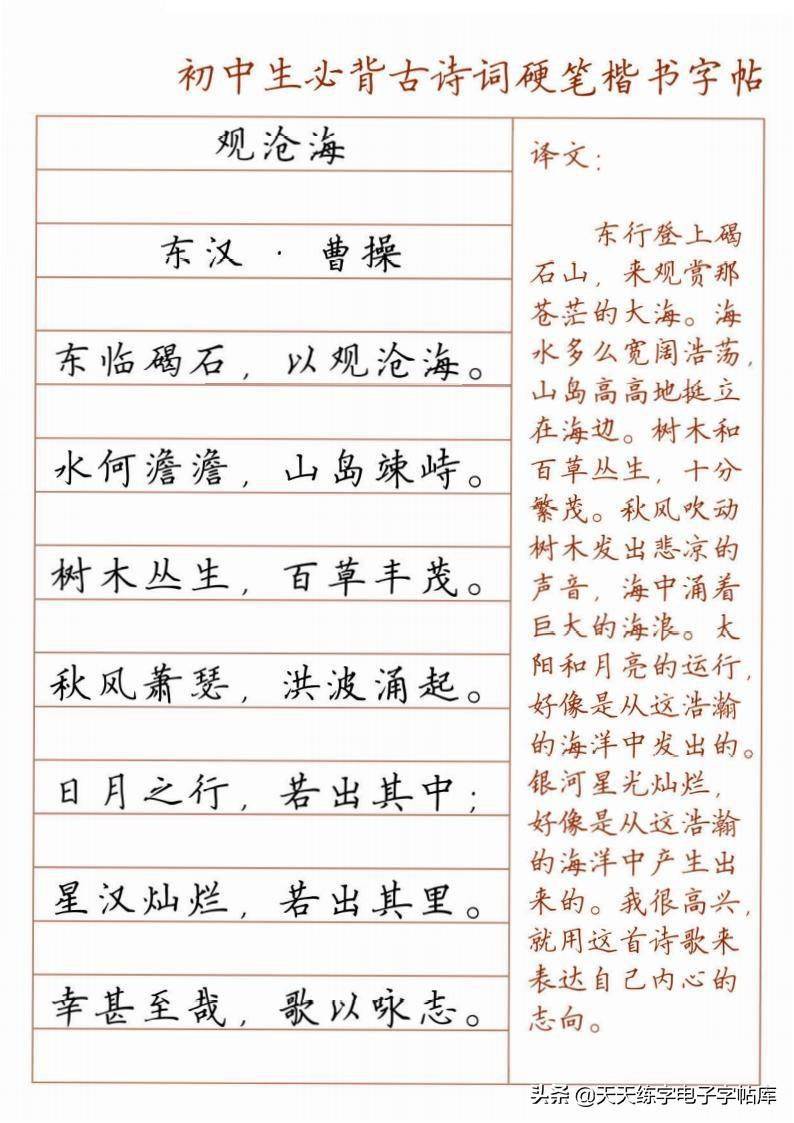 初中生必背古诗词硬笔楷书字帖
观沧海
东汉 · 曹操
东临碣石，以观沧海。
水何澹澹，山岛竦峙。
树木丛生，百草丰茂。
秋风萧瑟，洪波涌起。
日月之行，若出其中；
星汉灿烂，若出其里。
幸甚至哉，歌以咏志。
译文：
东行登上碣
石山，来观赏那
苍茫的大海。海
水多么宽阔浩荡，
山岛高高地挺立
在海边。树木和
百草丛生，十分
繁茂。秋风吹动
树木发出悲凉的
声音，海中涌着
巨大的海浪。太
阳和月亮的运行，
好像是从这浩瀚
的海洋中发出的。
银河星光灿烂，
好像是从这浩瀚
的海洋中产生出
来的。我很高兴，
就用这首诗歌来
表达自己内心的
志向。
头条 @天天练字电子字帖库